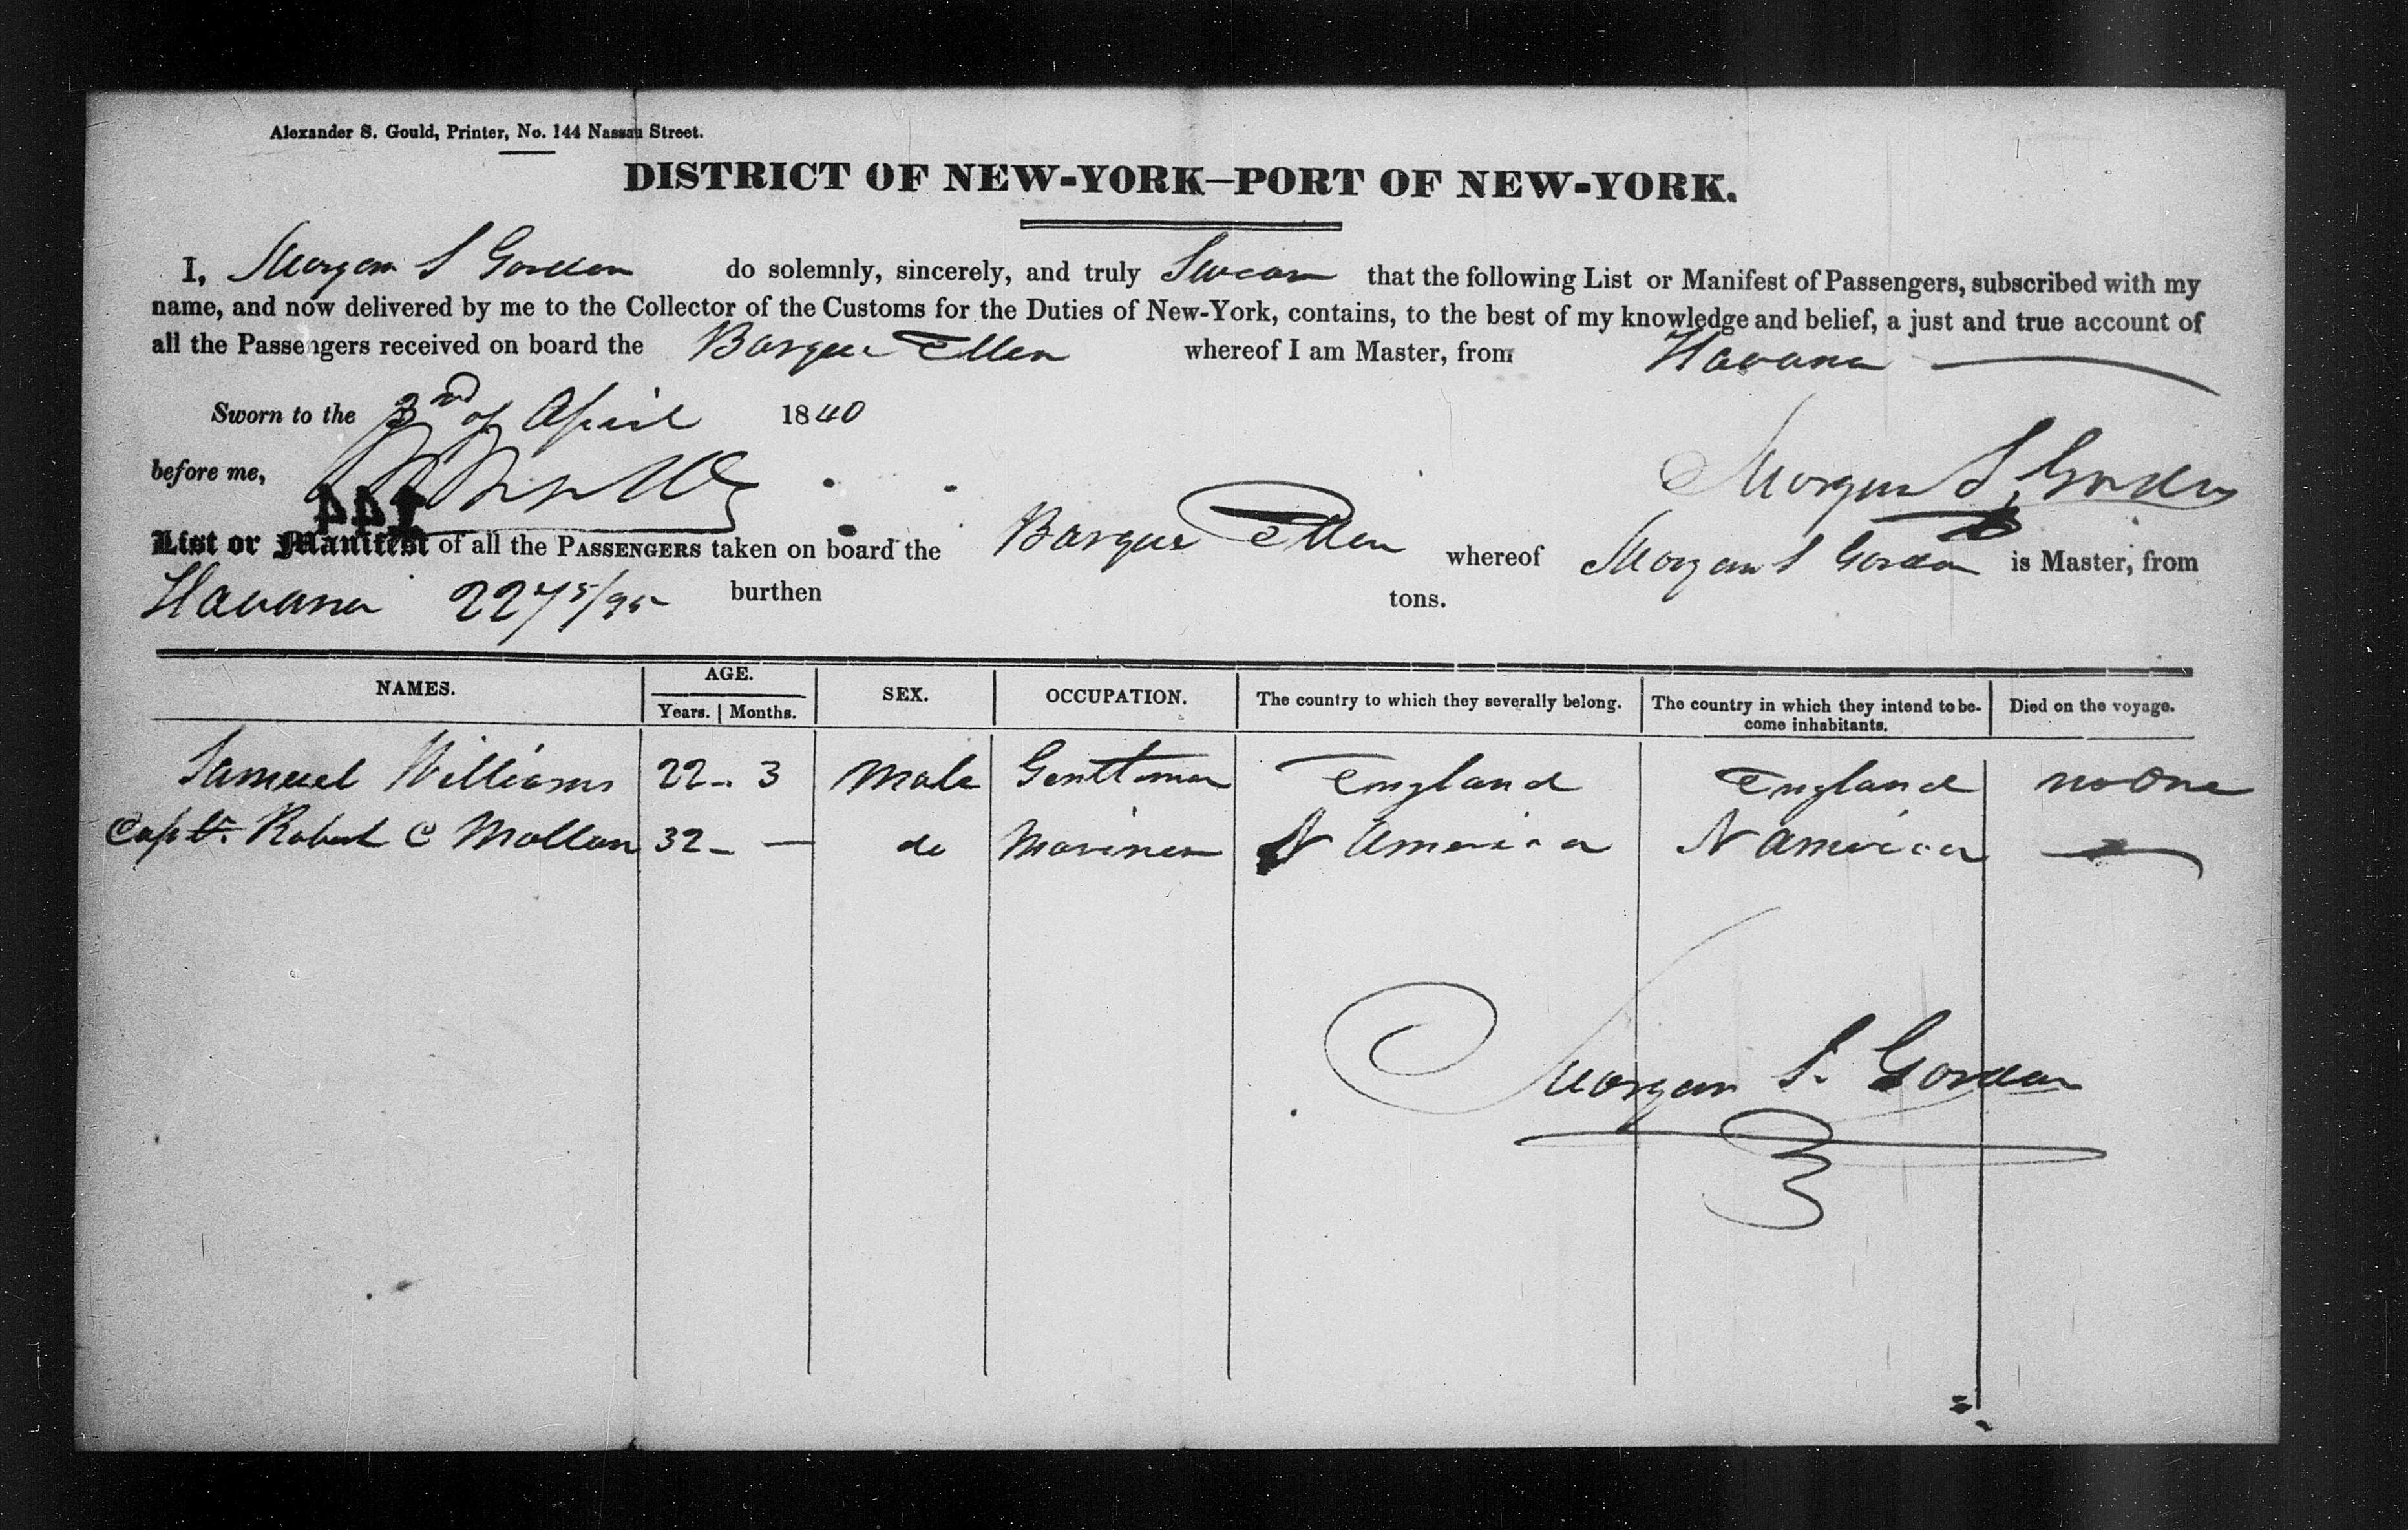 Alexander S. Gould, Printer, No. 144 Nassau Street.
DISTRICT OF NEW-YORK—PORT OF NEW-YORK.
I, Morgan S Gordon do solemnly, sincerely, and truly Swear that the following List or Manifest of Passengers, subscribed with my
name, and now delivered by me to the Collector of the Customs for the Duties of New-York, contains, to the best of my knowledge and belief, a just and true account of
all the Passengers received on board the Barque Ellen whereof I am Master, from Havana
Sworn to the 3rd of April 1840
before me,
Morgan S. Gordon
144
List or Manifest of all the PASSENGERS taken on board the Barque Ellen whereof Morgan S Gordon is Master, from
Havana 227 5/95 burthen tons.
NAMES. AGE. SEX. OCCUPATION. The country to which they severally belong. The country in which they intend to be- Died on the voyage.
Years. Months. come inhabitants.
Samuel Williams 22 - 3 Male Gentleman England England no One
Capt. Robert C 32 - — do Mariner N America N America —
Morgan S. Gordon